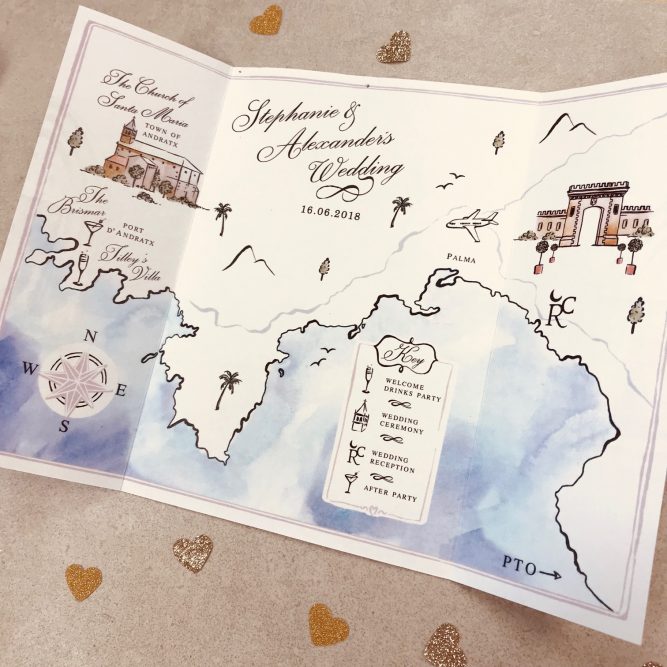 The Church of
Santa Maria
TOWN OF
ANDRATX
The
Brismar
PORT
D'ANDRATX
Tilley's
Villa
Stephanie &
Alexander's
Wedding
16.06.2018
PALMA
CR
N
W
E
S
Key
WELCOME
DRINKS PARTY
WEDDING
CEREMONY
CR
WEDDING
RECEPTION
AFTER PARTY
PTO→